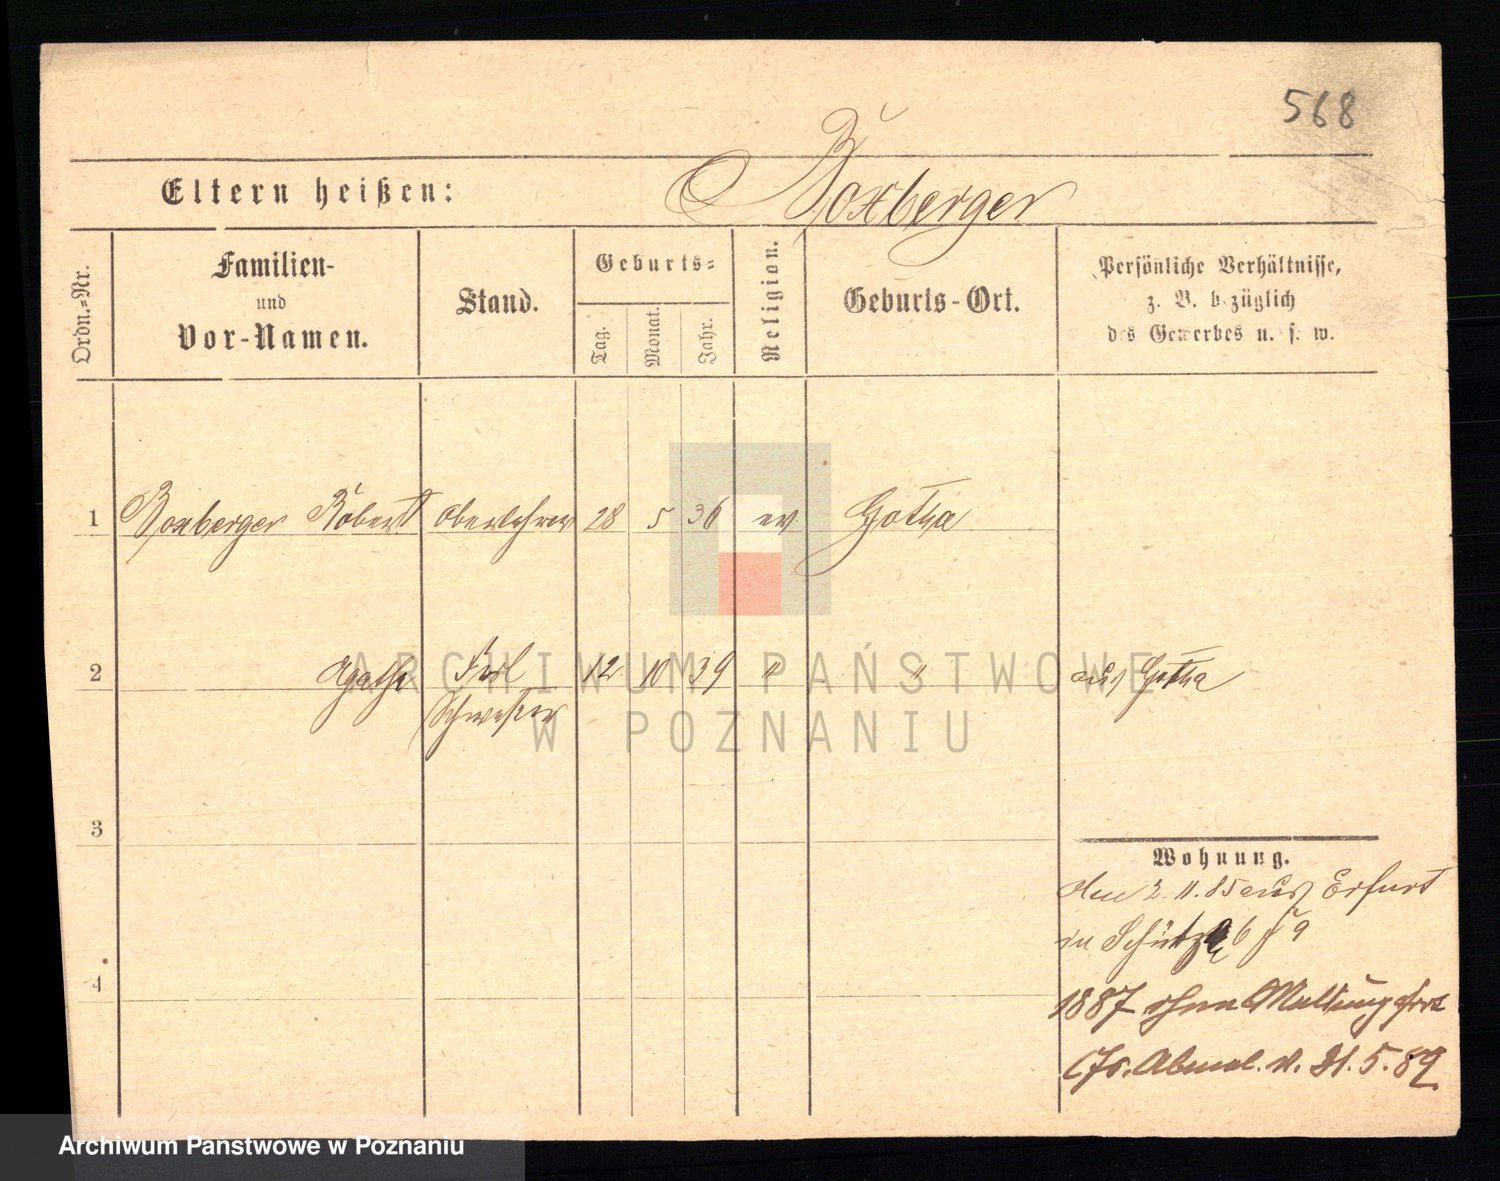 568
Eltern heißen: Boxberger
Ordn.-Nr.
Familien-
und
Vor-Namen.
Stand.
Geburts-
Tag.
Monat.
Jahr.
Religion.
Geburts-Ort.
Persönliche Verhältnisse,
z. B. bezüglich
des Gewerbes u. s. w.
1 Boxberger Robert Oberlehrer 28 5 36 ev. Gotha
2 Agatha Schwester 12 10 39 " " aus Gotha
3
Wohnung.
den 2. 11. 85 aus Erfurt
in
4
1887 ohne Meldung fort
Abmel. v. 31. 5. 89
ARCHIWUM PAŃSTWOWE
W POZNANIU
Archiwum Państwowe w Poznaniu